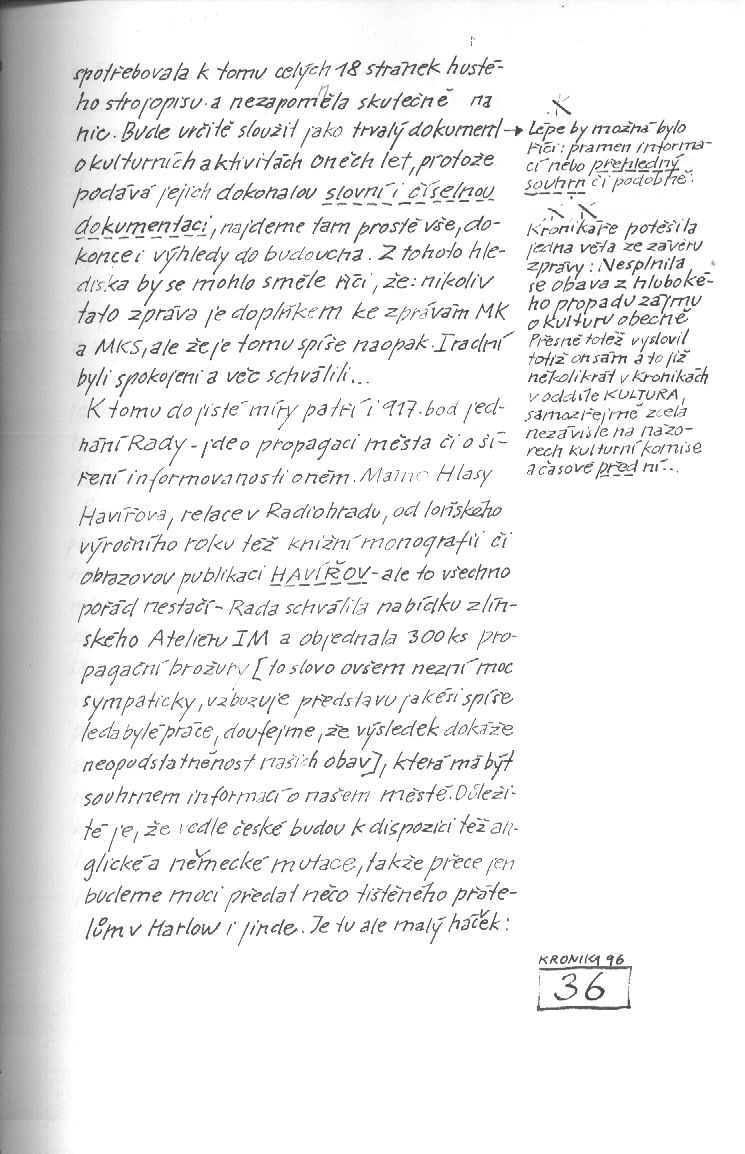 spotřebovala k tomu celých 18 stránek husté-
ho strojopisu a nezapomněla skutečně na
nic. Bude určitě sloužit jako trvalý dokument →
o kulturních aktivitách oněch let, protože
podává jejich dokonalou slovní i číselnou
dokumentaci, najdeme tam prostě vše, do-
konce i výhledy do budoucna. Z tohoto hle-
diska by se mohlo směle říci, že: nikoliv
tato zpráva je doplňkem ke zprávám MK
a MKS, ale že je tomu spíše naopak. I radní
byli spokojeni a věc schválili...
K tomu do jisté míry patří i 917. bod jed-
nání Rady - jde o propagaci města či o ší-
ření informovanosti o něm. Máme Hlasy
Havířova, relace v Radiohradu, od loňského
výročního roku též knižní monografii či
obrazovou publikaci HAVÍŘOV - ale to všechno
pořád nestačí - Rada schválila nabídku zlín-
ského Atelieru IM a objednala 300 ks pro-
pagační brožury [to slovo ovšem nezní moc
sympaticky, vzbuzuje představu jakési spíše
ledabylé práce, doufejme, že výsledek dokáže
neopodstatněnost našich obav], která má být
souhrnem informací o našem městě. Důleži-
té je, že vedle české budou k dispozici též an-
glické a německé mutace, takže přece jen
budeme moci předat něco tištěného přáte-
lům v Harlow i jinde. Je tu ale malý háček:
X
Lépe by možná bylo
říci: pramen informa-
cí nebo přehledný
souhrn či podobně.
X X
Kronikáře potěšila
jedna věta ze závěru
zprávy: Nesplnila
se obava z hluboké-
ho propadu zájmu
o kulturu obecně
Přesně totéž vyslovil
totiž on sám a to již
několikrát v Kronikách
v oddíle KULTURA,
samozřejmě zcela
nezávisle na názo-
rech kulturní komise
a časově před ní...
KRONIKA 96
36